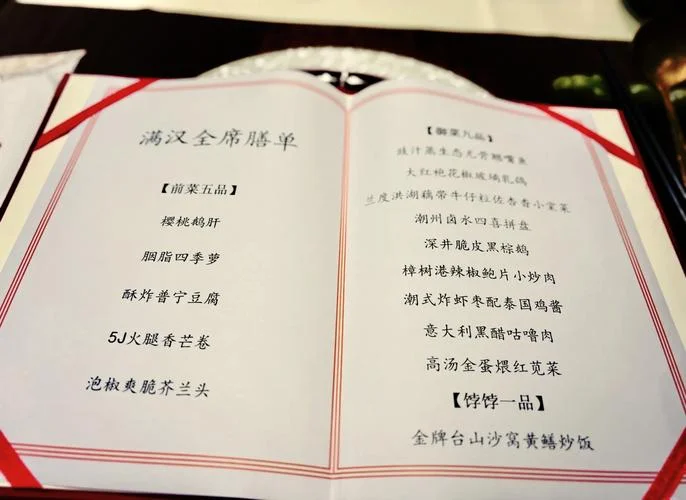 满汉全席膳单
【前菜五品】
樱桃鹅肝
胭脂四季萝
酥炸普宁豆腐
5J火腿香芒卷
泡椒爽脆芥兰头
【御菜九品】
豉汁蒸生态无骨翘嘴鱼
大红袍花椒玻璃乳鸽
兰度洪湖藕带牛仔粒佐杏香小棠菜
潮州卤水四喜拼盘
深井脆皮黑棕鹅
樟树港辣椒鲍片小炒肉
潮式炸虾枣配泰国鸡酱
意大利黑醋咕噜肉
高汤金蛋煨红苋菜
【饽饽一品】
金牌台山沙窝黄鳝炒饭